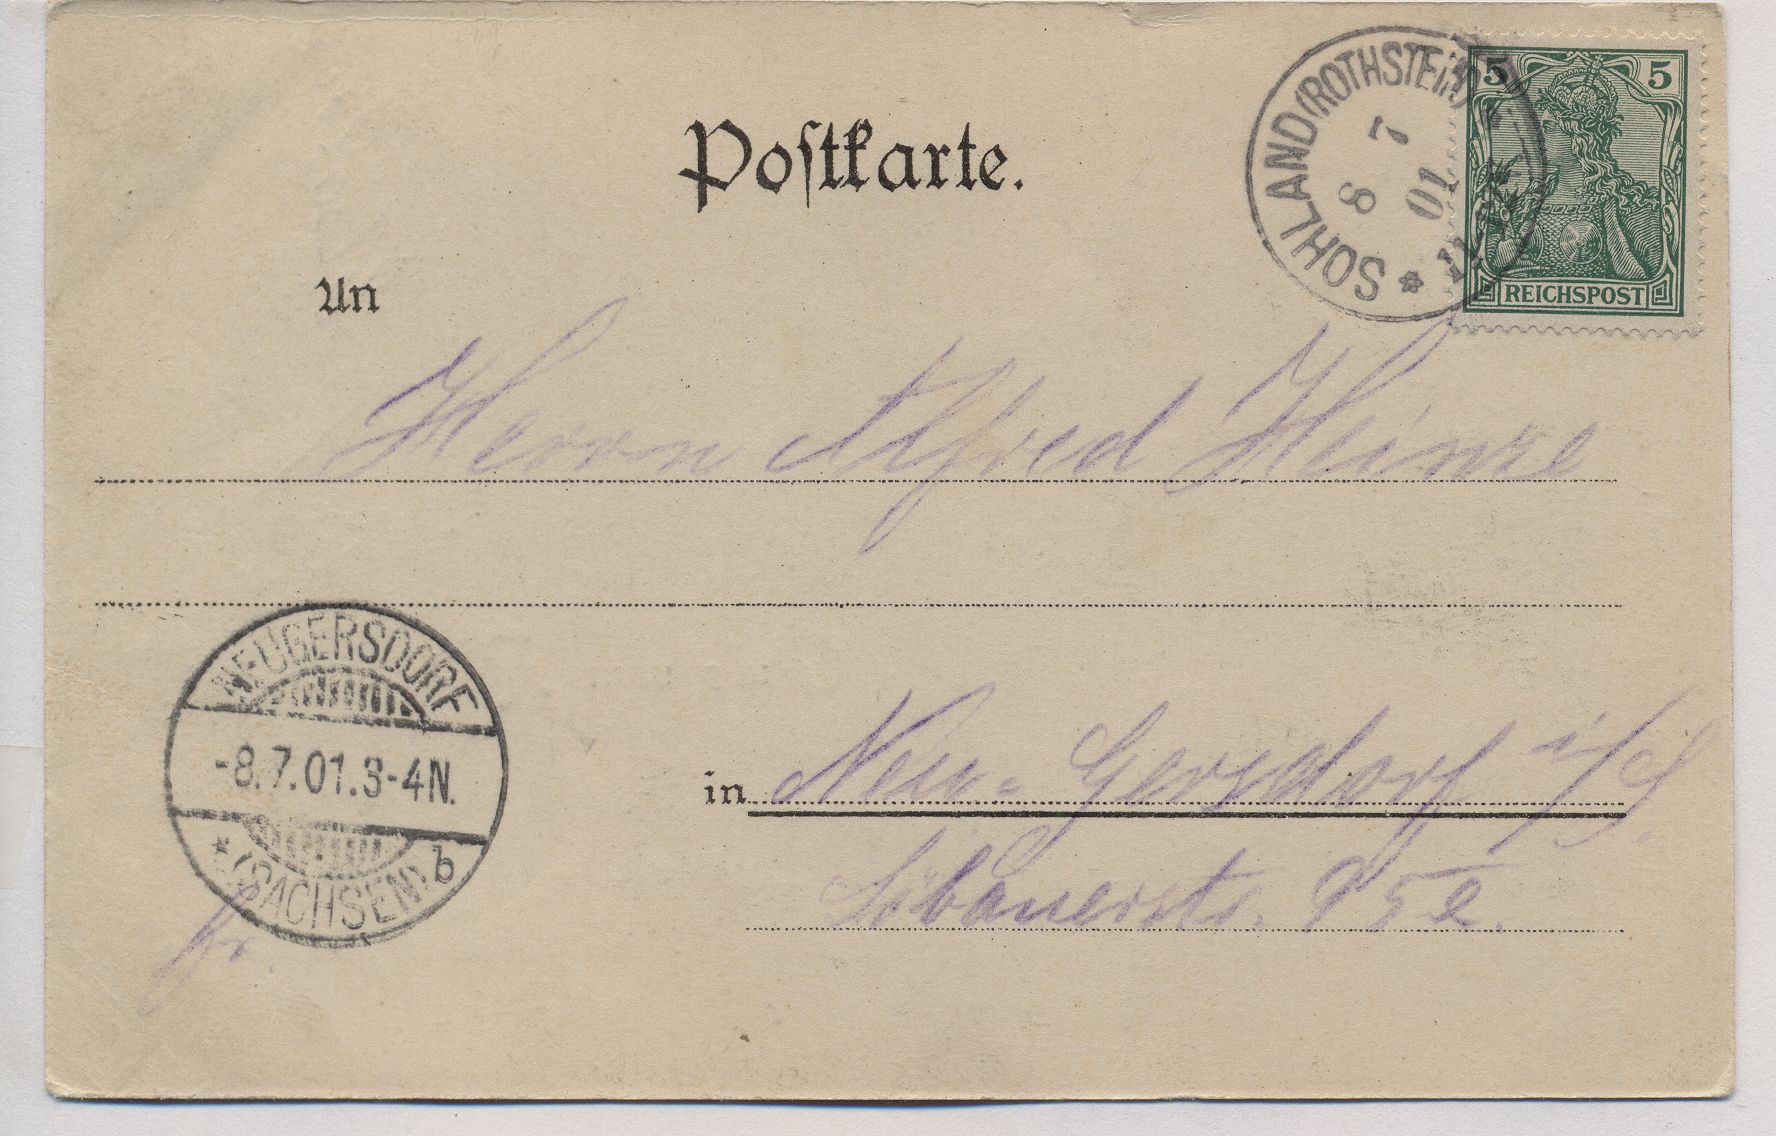 Postkarte.
SOHLAND (ROTHSTEIN)
8 7
01
5 5
REICHSPOST
An
Herrn Alfred Heinze
in Neu-Gersdorf i/S.
Löbauerstr. 95 e.
NEUGERSDORF
-8.7.01.3-4N.
* (SACHSEN) b
fr.